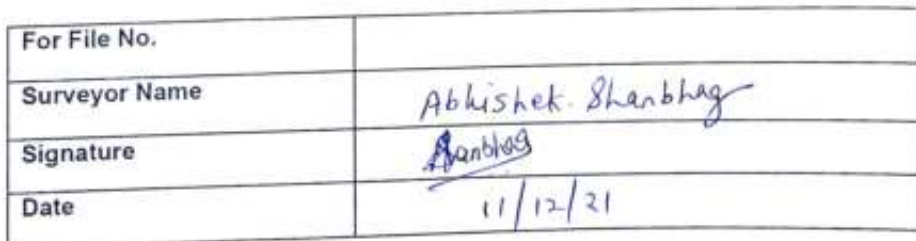 For File No.
Surveyor Name Abhishek. Shanbhag
Signature Shanbhag
Date 11/12/21